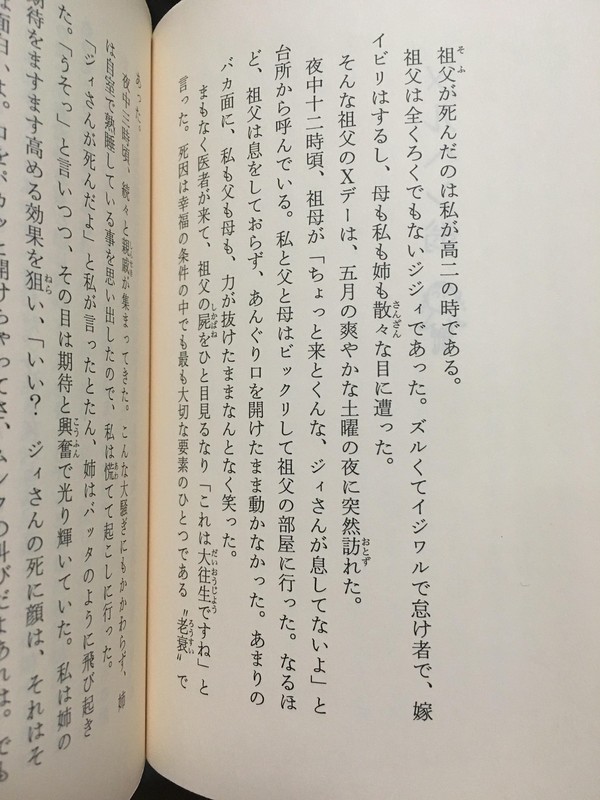 祖父が死んだのは私が高二の時である。
祖父は全くろくでもないジジィであった。ズルくてイジワルで怠け者で、嫁
イビリはするし、母も私も姉も散々な目に遭った。
そんな祖父のXデーは、五月の爽やかな土曜の夜に突然訪れた。
夜中十二時頃、祖母が「ちょっと来とくんな、ジィさんが息してないよ」と
台所から呼んでいる。私と父と母はビックリして祖父の部屋に行った。なるほ
ど、祖父は息をしておらず、あんぐり口を開けたまま動かなかった。あまりの
バカ面に、私も父も母も、力が抜けたままなんとなく笑った。
まもなく医者が来て、祖父の屍をひと目見るなり「これは大往生ですね」と
言った。死因は幸福の条件の中でも最も大切な要素のひとつである〝老衰〟で
あった。
夜中三時頃、続々と親戚が集まってきた。こんな大騒ぎにもかかわらず、姉
は自室で熟睡している事を思い出したので、私は慌てて起こしに行った。
「ジィさんが死んだよ」と私が言ったとたん、姉はバッタのように飛び起き
た。「うそっ」と言いつつ、その目は期待と興奮で光り輝いていた。私は姉の
期待をますます高める効果を狙い、「いい？　ジィさんの死に顔は、それはそ
面白いよ。口をパカッと開けちゃってさ、ムンクの叫びだよあれは。でも